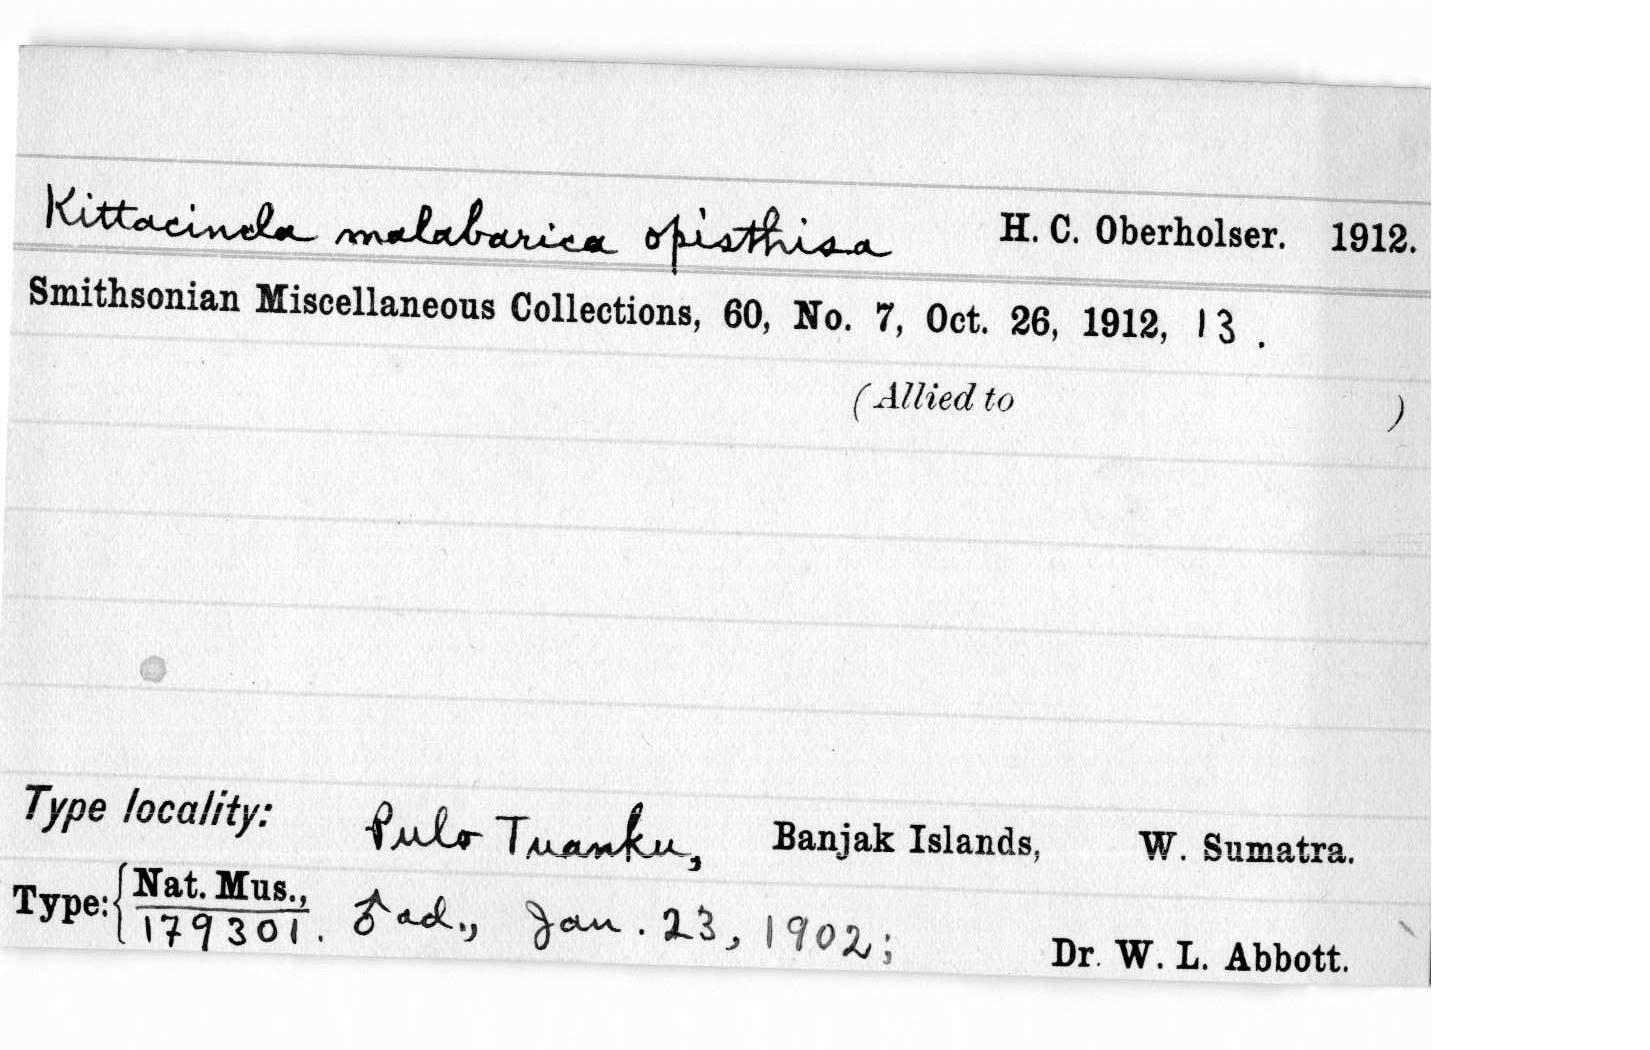 Kittacincla malabarica opisthisa H. C. Oberholser. 1912.
Smithsonian Miscellaneous Collections, 60, No. 7, Oct. 26, 1912, 13.
(Allied to )
Type locality: Pulo Tuanku, Banjak Islands, W. Sumatra.
Type: { Nat. Mus., 179301. ♂ ad., Jan. 23, 1902; Dr. W. L. Abbott.